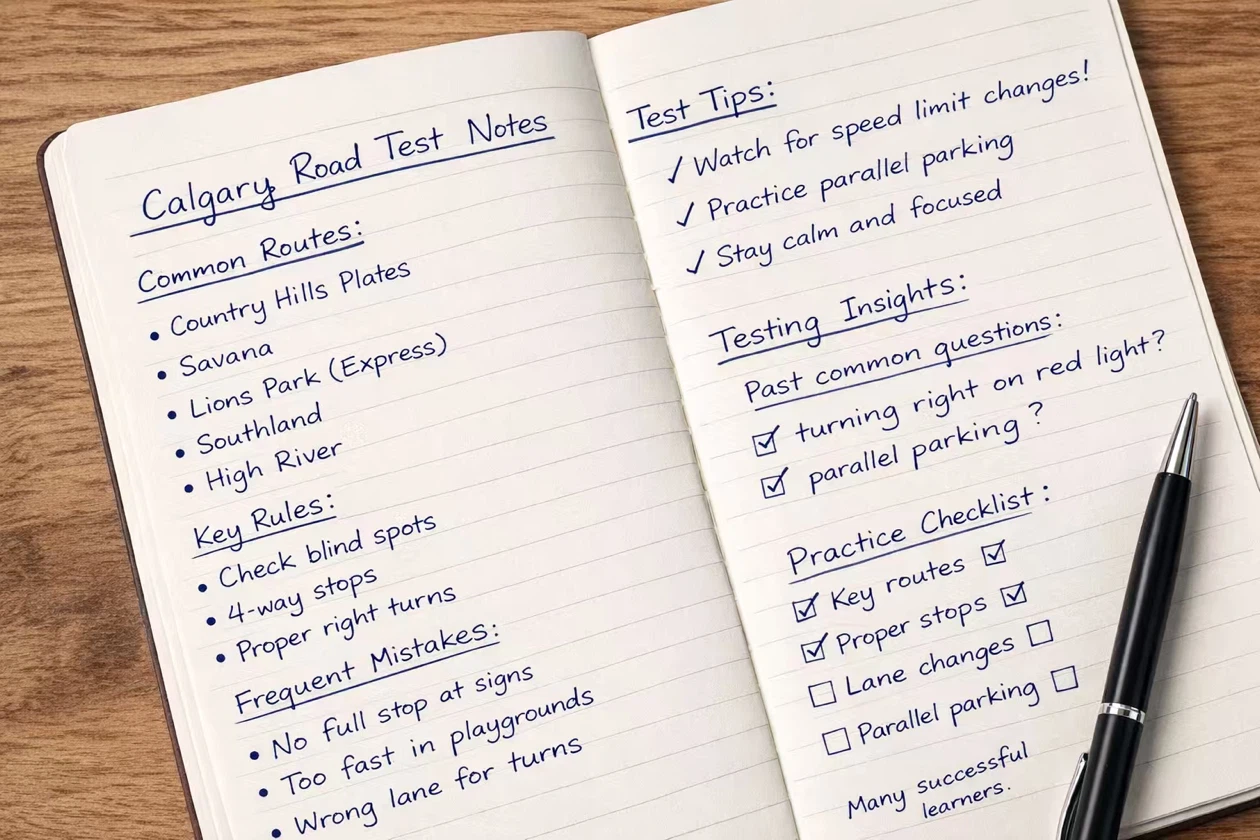 Calgary Road Test Notes
Common Routes:
• Country Hills Plates
• Savana
• Lions Park (Express)
• Southland
• High River
Key Rules:
• Check blind spots
• 4-way stops
• Proper right turns
Frequent Mistakes:
• No full stop at signs
• Too fast in playgrounds
• Wrong lane for turns
Test Tips:
✓ Watch for speed limit changes!
✓ Practice parallel parking
✓ Stay calm and focused
Testing Insights:
Past common questions:
☑ turning right on red light?
☑ parallel parking ?
Practice Checklist :
☑ Key routes ☑
☑ Proper stops ☑
☐ Lane changes ☐
☐ Parallel parking ☐
Many successful
learners.